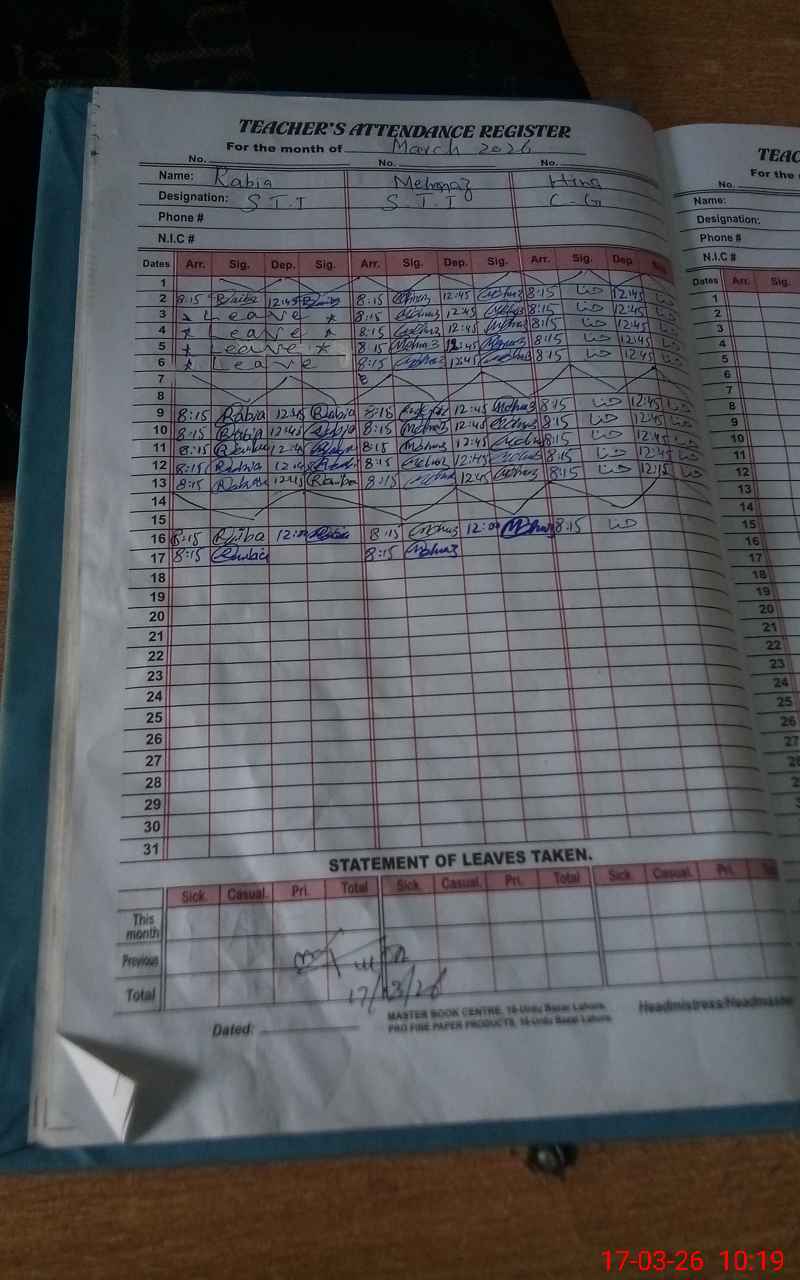 TEACHER'S ATTENDANCE REGISTER
For the month of March 2026
No. No. No.
Name: Rabia Mehnaz Hina
Designation: S.T.I S.T.I C.G
Phone #
N.I.C #
Dates Arr. Sig. Dep. Sig. Arr. Sig. Dep. Sig. Arr. Sig. Dep.
1
2 8:15 12:45 8:15 12:45 8:15 حنا 12:45 حنا
3 * Leave * 8:15 12:45 8:15 حنا 12:45 حنا
4 * Leave * 8:15 12:45 8:15 حنا 12:45 حنا
5 * Leave * 8:15 12:45 8:15 حنا 12:45 حنا
6 * Leave 8:15 12:45 8:15 حنا 12:45 حنا
7
8
9 8:15 Rabia 12:45 Rabia 8:15 12:45 Mehnaz 8:15 حنا 12:45 حنا
10 8:15 Rabia 12:45 Rabia 8:15 Mehnaz 12:45 Mehnaz 8:15 حنا 12:45 حنا
11 8:15 12:45 8:15 Mehnaz 12:45 8:15 حنا 12:45 حنا
12 8:15 Rabia 12:45 8:15 12:45 8:15 حنا 12:45 حنا
13 8:15 12:45 8:15 12:45 8:15 حنا 12:15 حنا
14
15
16 8:15 12:00 8:15 12:00 8:15 حنا
17 8:15 8:15
18
19
20
21
22
23
24
25
26
27
28
29
30
31
STATEMENT OF LEAVES TAKEN.
Sick. Casual. Pri. Total Sick. Casual. Pri. Total Sick. Casual. Pri.
This month
Previous
Total
17/03/26
Dated:
MASTER BOOK CENTRE, 16-Urdu Bazar Lahore.
PRO FINE PAPER PRODUCTS, 16-Urdu Bazar Lahore.
Headmistress/Headmaster
TEAC
For the
No.
Name:
Designation:
Phone #
N.I.C #
Dates Arr. Sig.
1
2
3
4
5
6
7
8
9
10
11
12
13
14
15
16
17
18
19
20
21
22
23
24
25
26
27
17-03-26 10:19